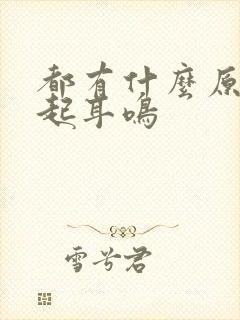 都有什麼原
起耳鳴
雪兮君